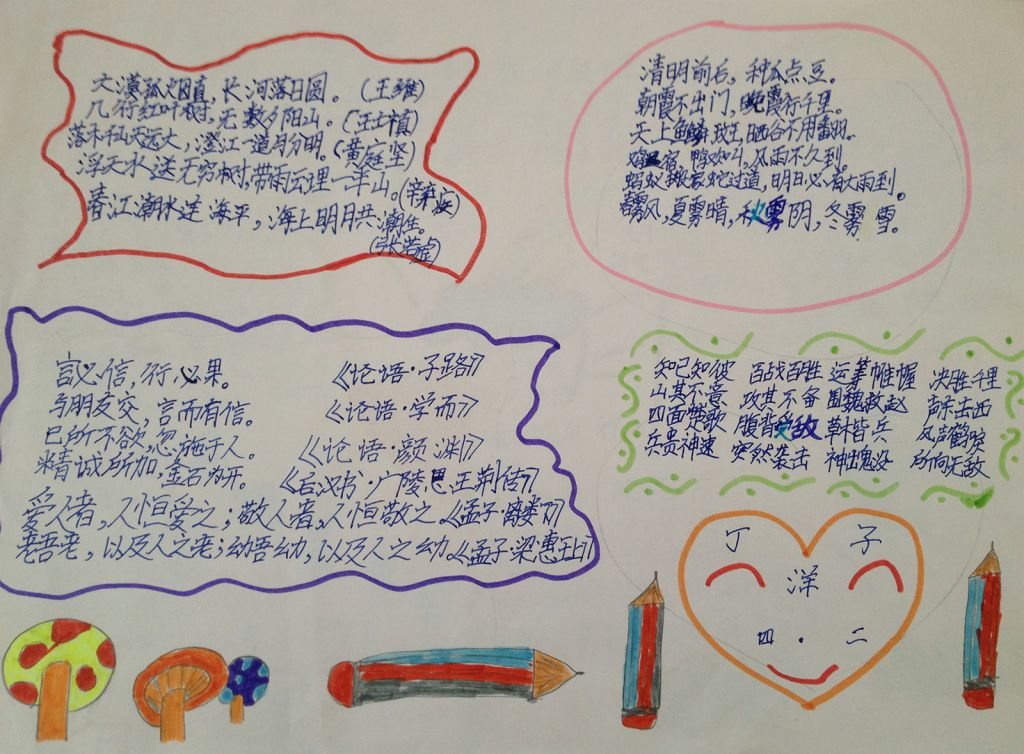 大漠孤烟直，长河落日圆。（王维）
几行红叶树，无数夕阳山。（王士禛）
落木千山天远大，澄江一道月分明。（黄庭坚）
浮天水送无穷树，带雨云埋一半山。（辛弃疾）
春江潮水连海平，海上明月共潮生。
（张若虚）
清明前后，种瓜点豆。
朝霞不出门，晚霞行千里。
天上鱼鳞斑，晒谷不用翻。
宿，鸭欢叫，风雨不久到。
蚂蚁搬家蛇过道，明日必有大雨到。
春雾风，夏雾晴，秋雾阴，冬雾雪。
言必信，行必果。《论语·子路》
与朋友交，言而有信。《论语·学而》
已所不欲，忽施于人。《论语·颜渊》
精诚所加，金石为开。《后汉书·广陵思王荆传》
爱人者，人恒爱之；敬人者，人恒敬之。《孟子·离娄下》
老吾老，以及人之老；幼吾幼，以及人之幼。《孟子·梁惠王上》
知己知彼 百战百胜 运筹帷幄 决胜千里
出其不意 攻其不备 围魏救赵 声东击西
四面楚歌 腹背受敌 草木皆兵 风声鹤唳
兵贵神速 突然袭击 神出鬼没 所向无敌
丁 子
洋
四·二